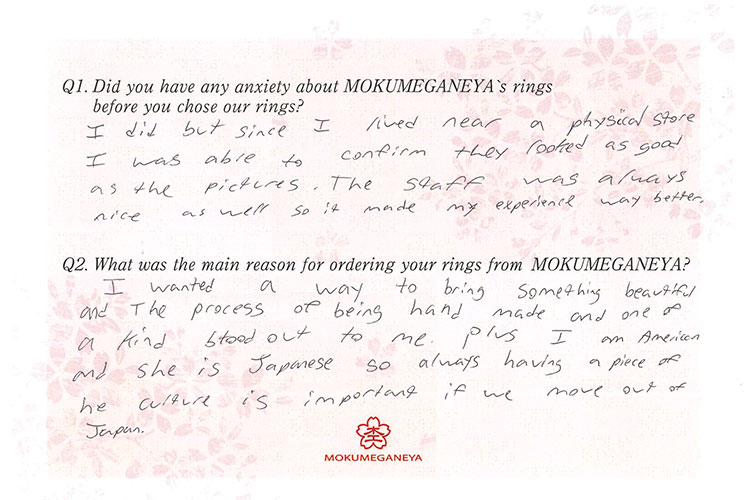 Q1. Did you have any anxiety about MOKUMEGANEYA`s rings
before you chose our rings?
I did but since I lived near a physical store
I was able to confirm they looked as good
as the pictures. The staff was always
nice as well so it made my experience way better.
Q2. What was the main reason for ordering your rings from MOKUMEGANEYA?
I wanted a way to bring something beautiful
and The process of being hand made and one of
a kind stood out to me. Plus I am American
and she is Japanese so always having a piece of
he culture is important if we move out of
Japan.
MOKUMEGANEYA